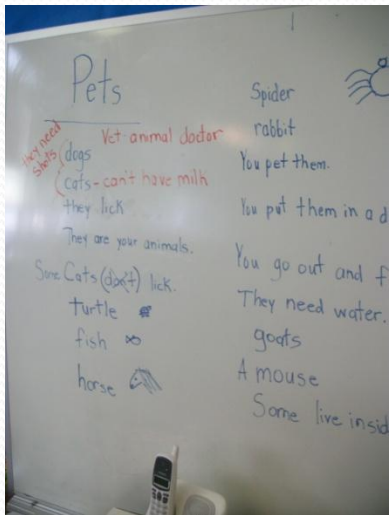 Pets
they need shots
Vet-animal doctor
dogs
cats-can't have milk
they lick
They are your animals.
Some Cats (don't) lick.
turtle
fish
horse
Spider
rabbit
You pet them.
You put them in a d
You go out and f
They need water.
goats
A mouse
Some live insid